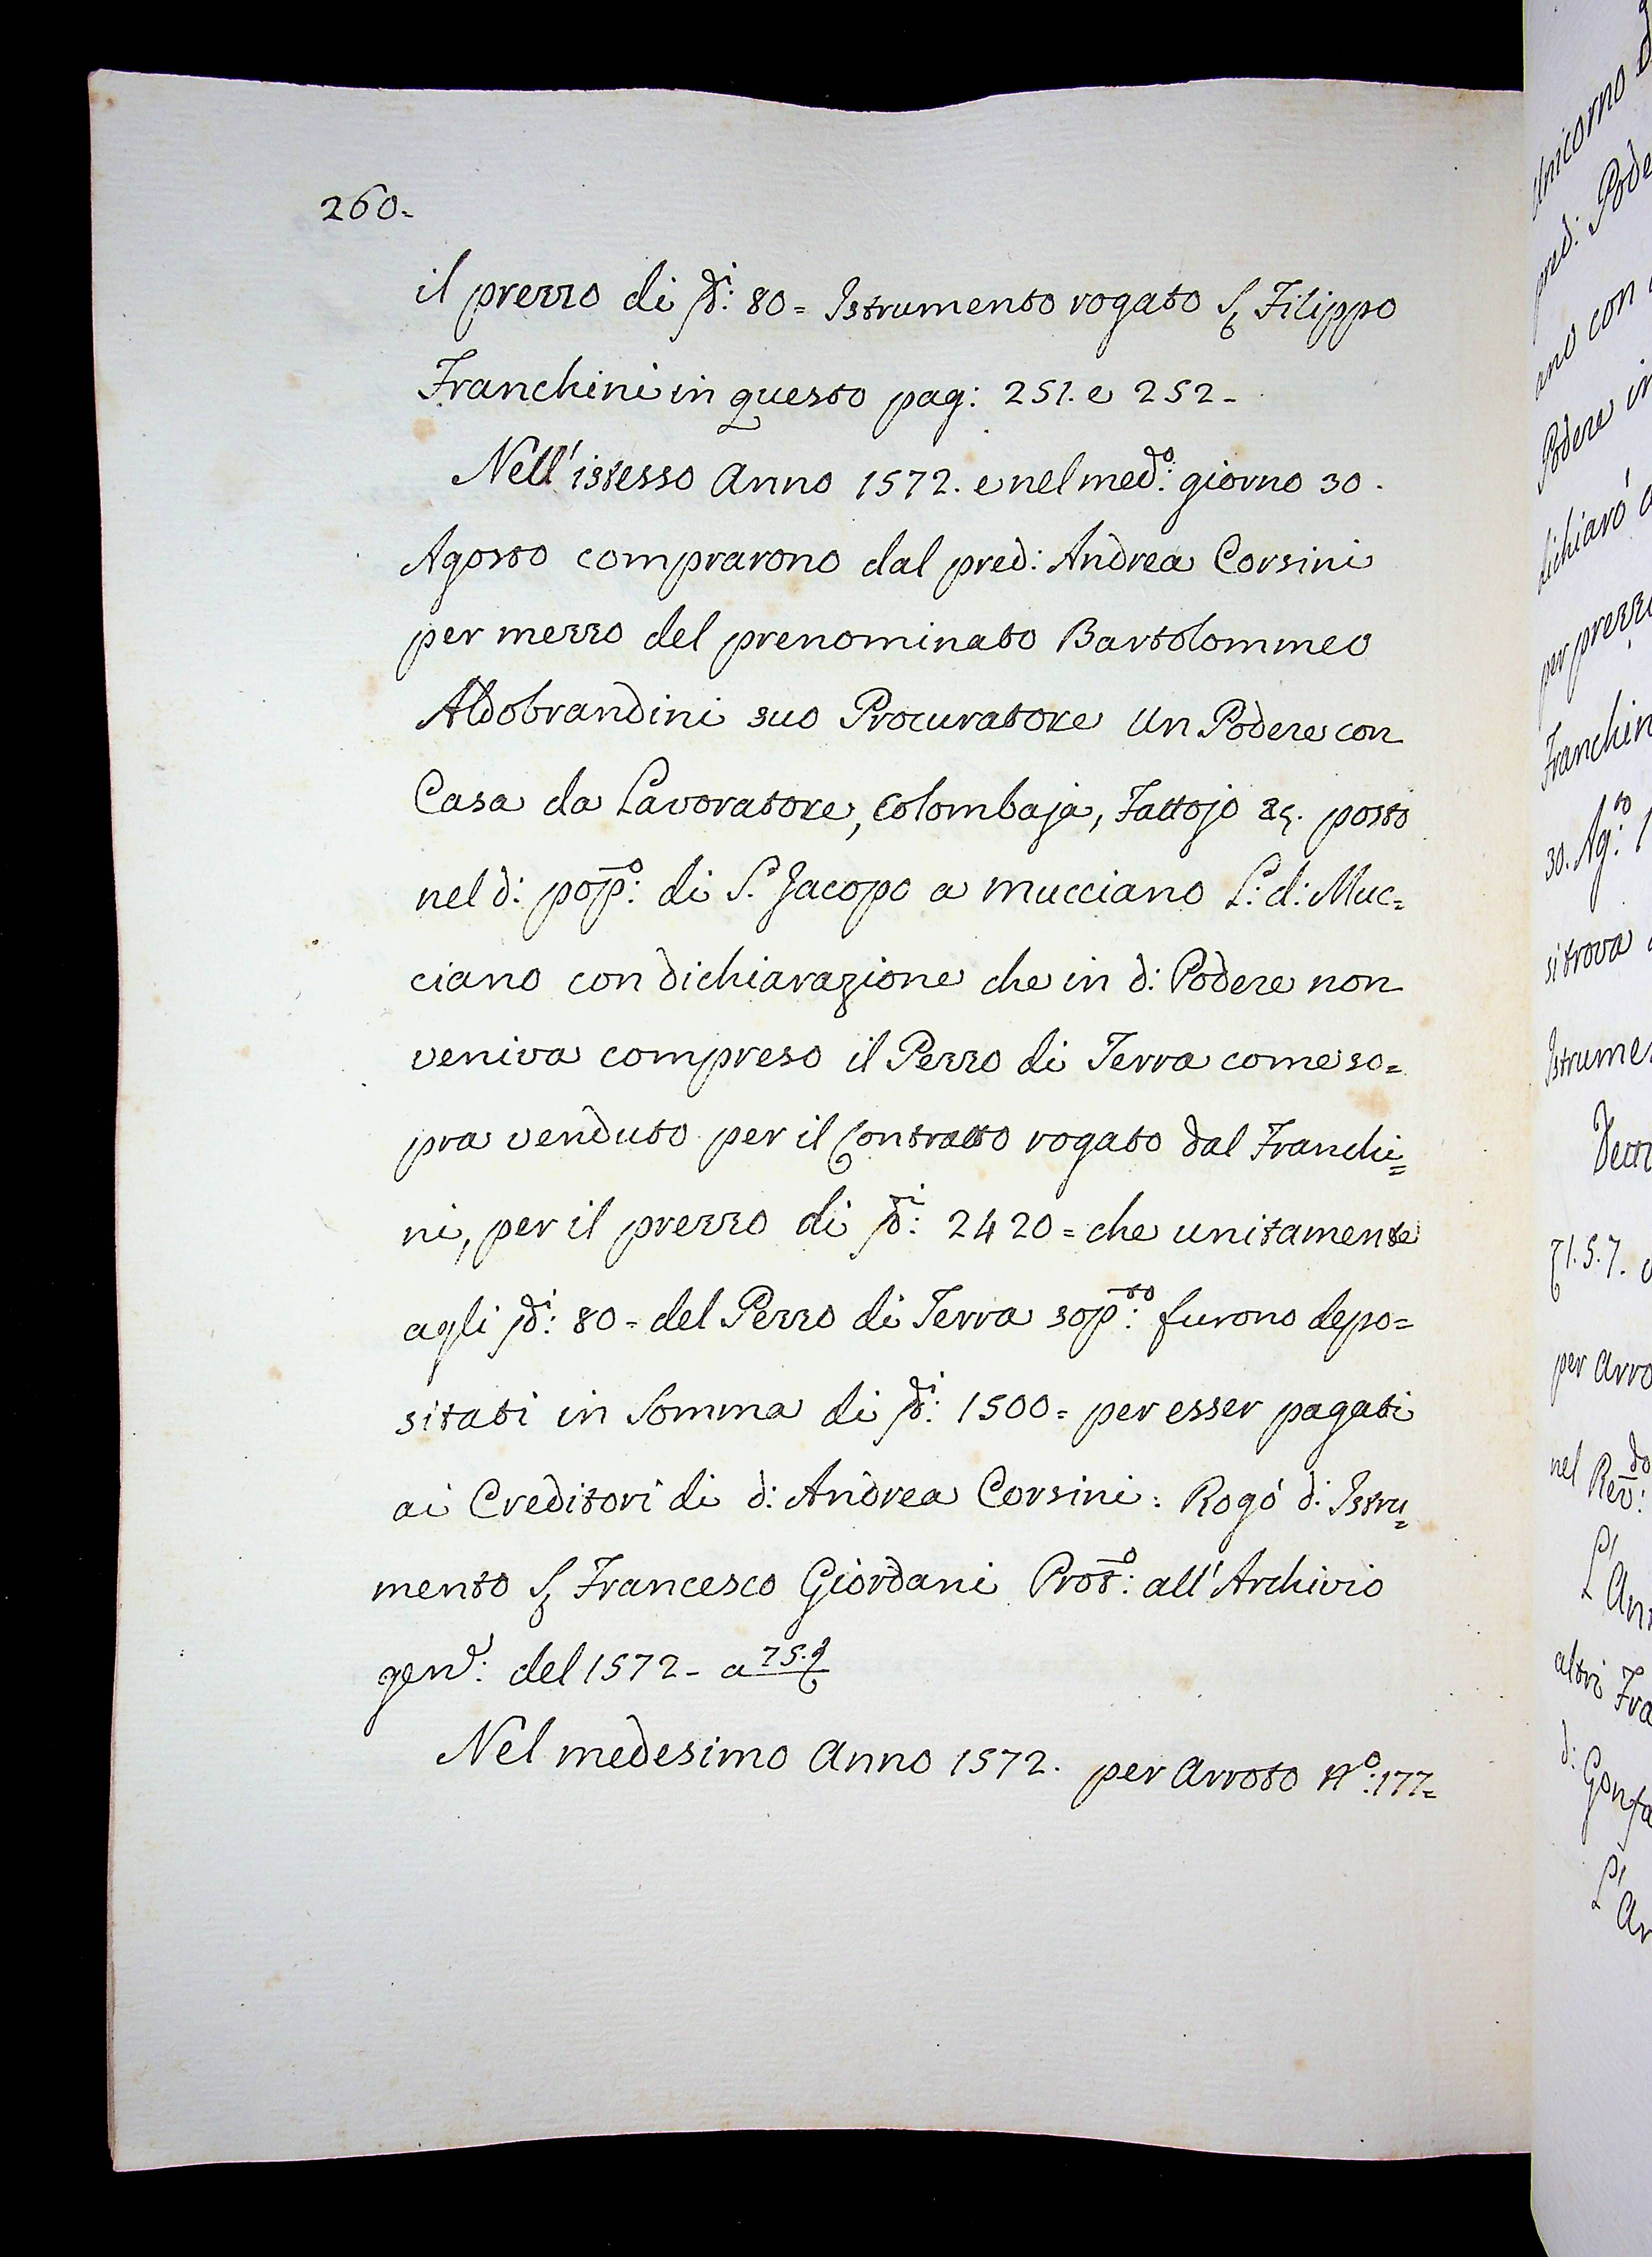 260=
il prezzo di ∇di: 80= Istrumento rogato S. Filippo
Franchini in questo pag: 251. e 252-
Nell'istesso Anno 1572. e nel medo: giorno 30.
Agosto comprarono dal pred: Andrea Corsini
per mezzo del prenominato Bartolommeo
Aldobrandini suo Procuratore Un Podere con
Casa da Lavoratore, Colombaja, Fattojo &c. posto
nel d: popo: di S. Jacopo a Mucciano L: d: Muc=
ciano con dichiarazione che in d: Podere non
veniva compreso il Pezzo di Terra come so=
pra venduto per il Contratto rogato dal Franchi=
ni, per il prezzo di di: 2420= che unitamente
agli di: 80= del Pezzo di Terra sopto: furono depo=
sitati in Somma di di: 1500= per esser pagati
ai Creditori di d: Andrea Corsini: Rogò d: Istru=
mento S. Francesco Giordani Proto: all'Archivio
gen: del 1572- a 75.
Nel medesimo Anno 1572. per Arroto No: 177=
Unicorno
pred: Pode
ano con
Podere in
dichiarò
per prezzo
Franchin
30. Ago:
si trova
Istrume
1.5.7.
per Arro
nel Revdo:
altri Fra
d: Gonfa